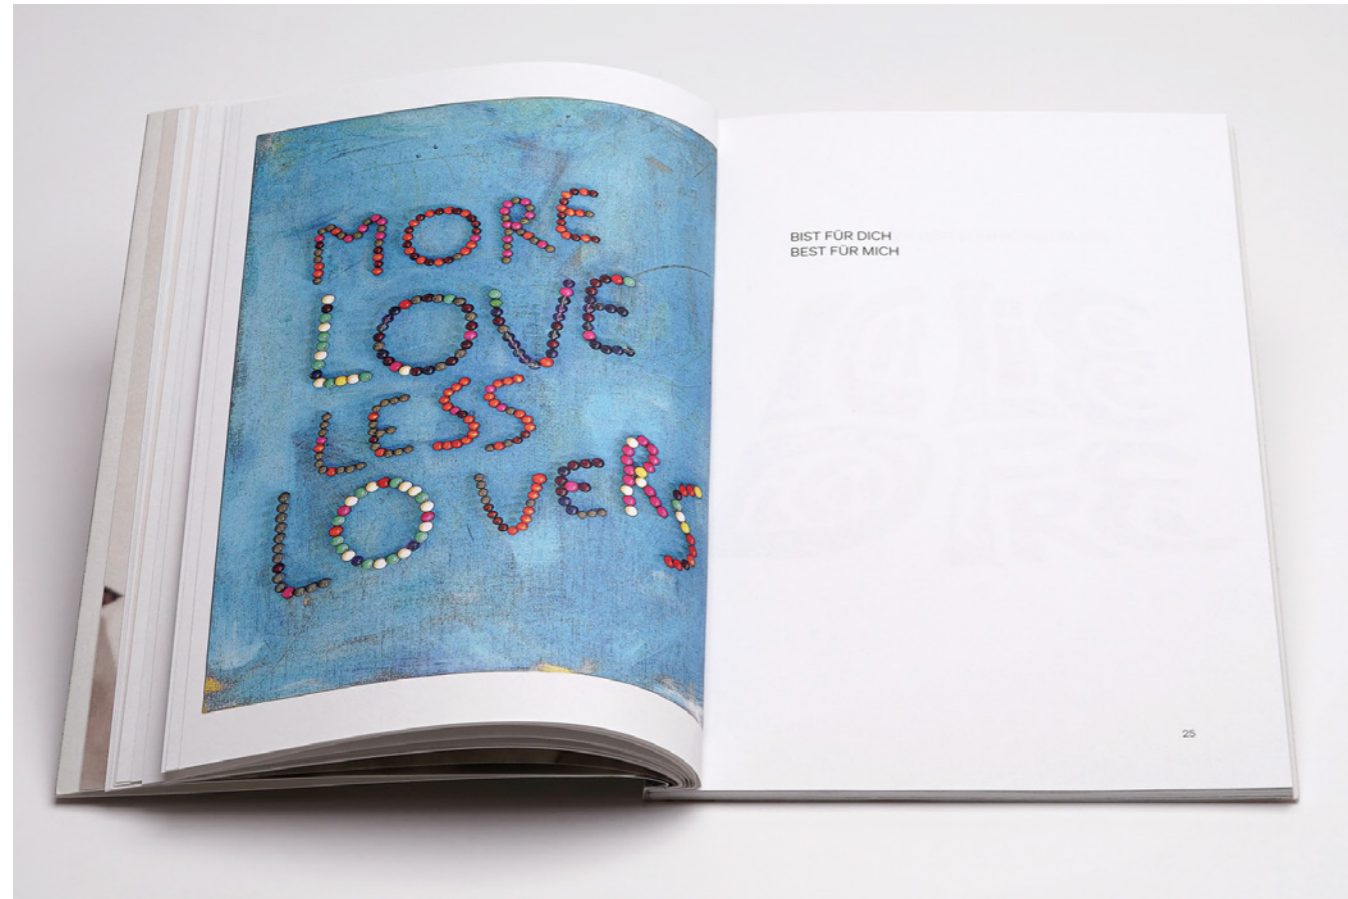 MORE
LOVE
LESS
LOVERS
BIST FÜR DICH
BEST FÜR MICH
25